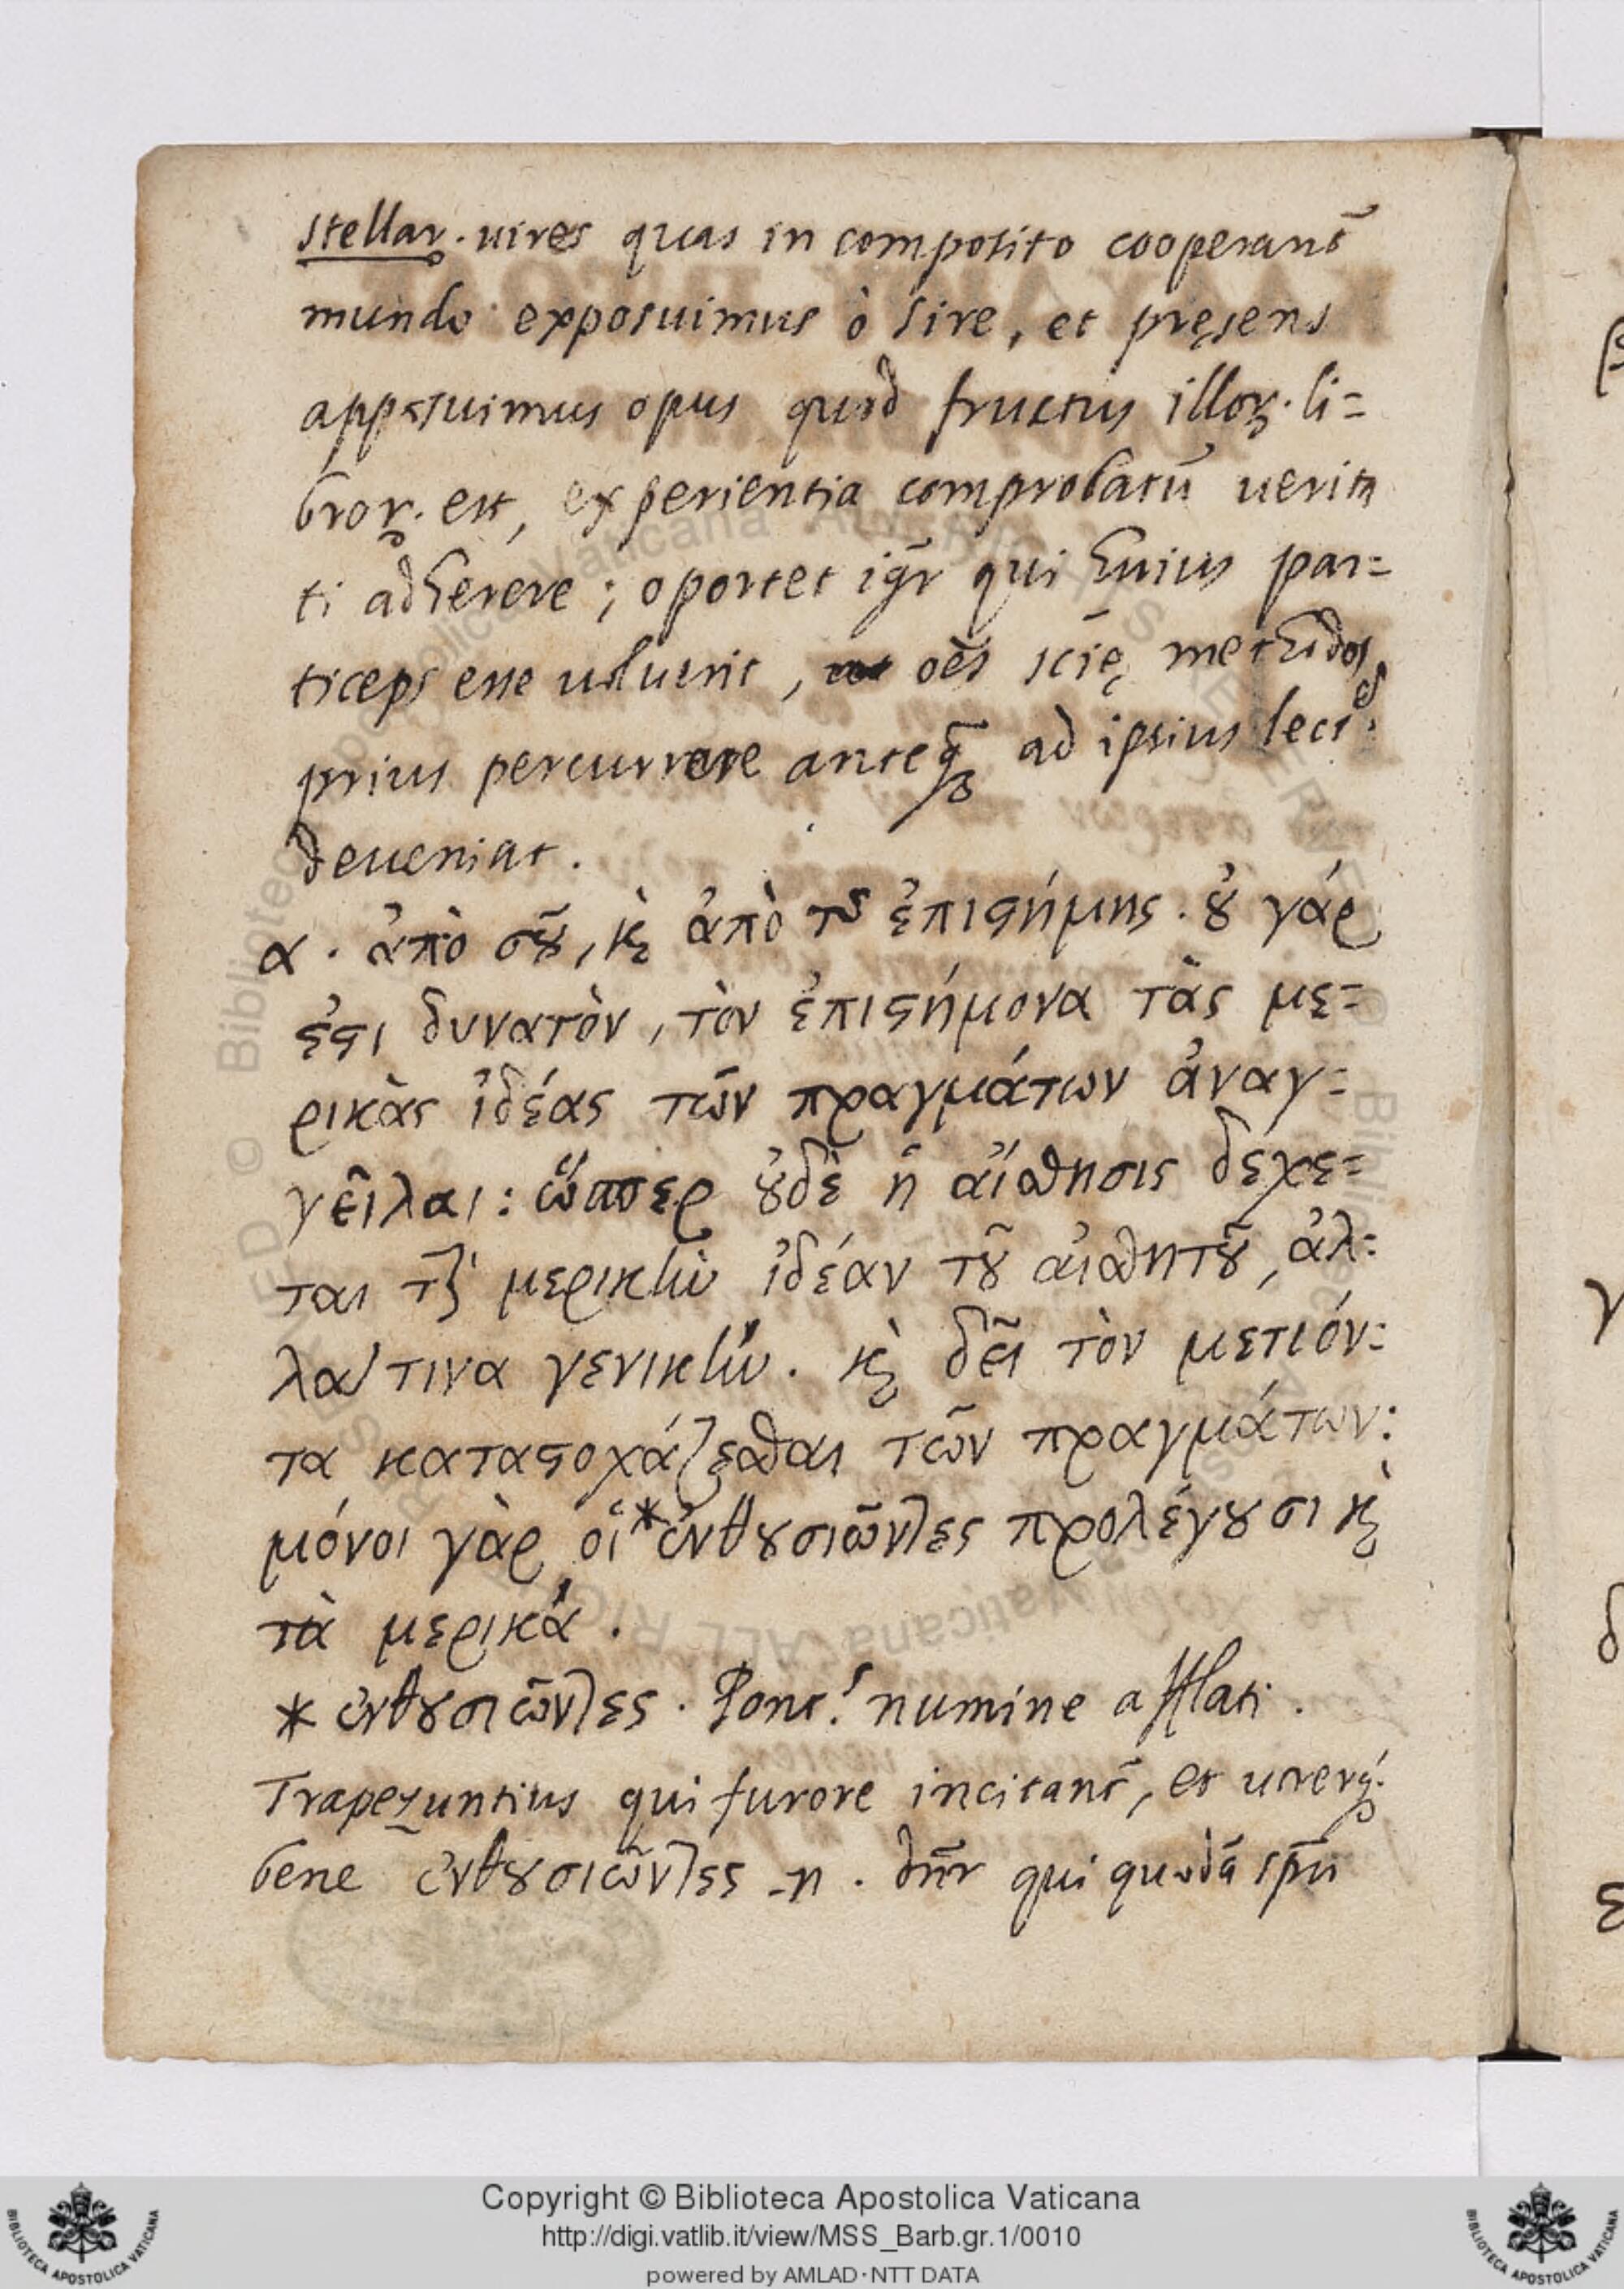 stellar. uires quas in composito cooperant̃
mundo exposuimus ò sire, et pręsens
apposuimus opus quod fructus illoꝝ. li=
broꝝ. est, experientia comprobatũ uerita
ti adherere; oportet igr̃ qui huius par=
ticeps esse uoluerit, oẽs sciẽ methodos
prius percurrere anteq̃ ad ipsius lect.
deueniat.
α. ἀπὸ σοῦ, κ̀ ἀπὸ τ͂ ἐπιϛήμης. οὐ γάρ
ἐϛι δυνατὸν, τὸν ἐπιϛήμονα τὰς με=
ρικὰς ἰδέας τῶν πραγμάτων ἀναγ=
γεῖλαι: ὥσπερ οὐδὲ ἡ αἴσθησις δέχε=
ται τὴν μερικὴν ἰδέαν τοῦ αἰσθητοῦ, ἀλ=
λά τινα γενικήν. κ̀ δεῖ τὸν μετιόν=
τα καταϛοχάζεσθαι τῶν πραγμάτων:
μόνοι γὰρ οἱ * ἐνθουσιῶντες προλέγουσι κ̀
τὰ μερικά.
* ἐνθουσιῶντες. Pont. numine afflati.
Trapezuntius qui furore incitant̃, et uterq.
bene ἐνθουσιῶντες -n. dñr qui quodã spũ
Copyright © Biblioteca Apostolica Vaticana
http://digi.vatlib.it/view/MSS_Barb.gr.1/0010
powered by AMLAD·NTT DATA
BIBLIOTECA APOSTOLICA VATICANA
BIBLIOTECA APOSTOLICA VATICANA